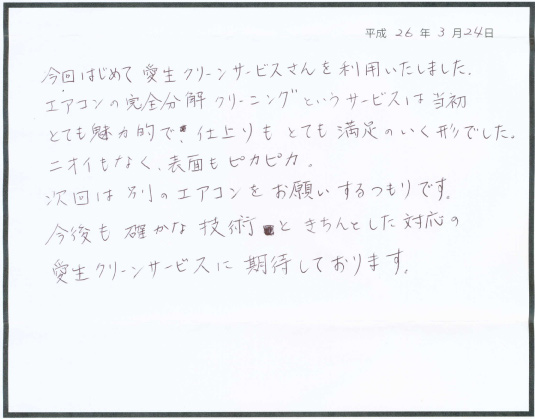 平成 26 年 3 月 24 日
今回はじめて愛生クリーンサービスさんを利用いたしました。
エアコンの完全分解クリーニングというサービスは当初
とても魅力的で、仕上りもとても満足のいく形でした。
ニオイもなく、表面もピカピカ。
次回は別のエアコンをお願いするつもりです。
今後も確かな技術ときちんとした対応の
愛生クリーンサービスに期待しております。